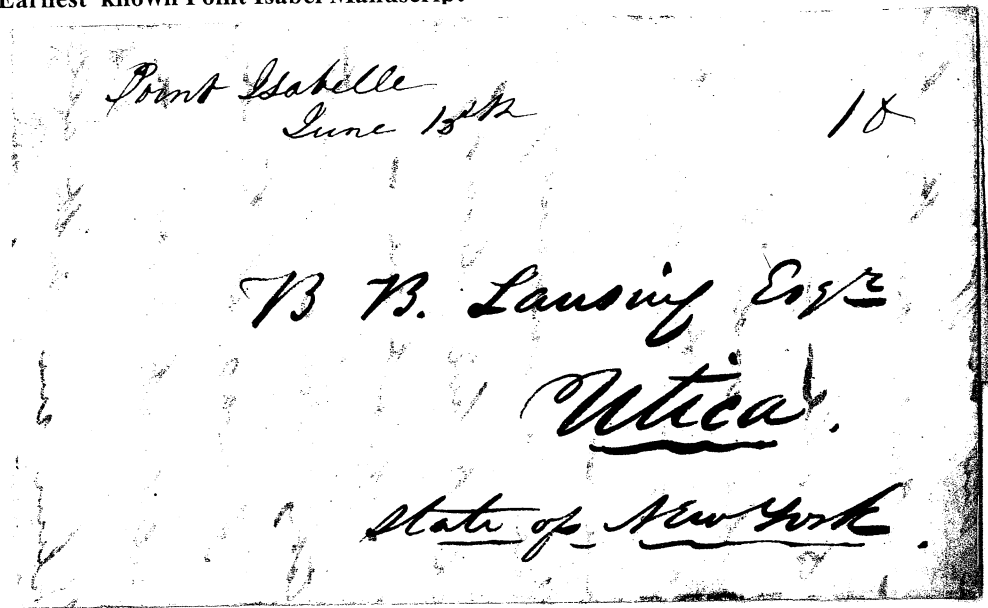 Earliest known Point Isabel Manuscript
Point Isabelle
June 13th 10
B B. Lansing Esqr
Utica.
State of New York.